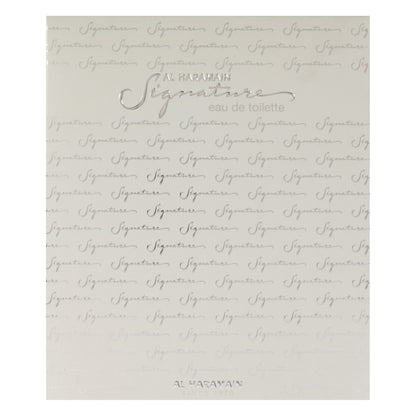 Signature Signature Signature Signature Signature
Signature Signature Signature Signature Signature
AL HARAMAIN
Signature
eau de toilette
Signature Signature Signature Signature Signature
Signature Signature Signature Signature Signature
Signature Signature Signature Signature Signature
Signature Signature Signature Signature Signature
Signature Signature Signature Signature Signature
Signature Signature Signature Signature Signature
Signature Signature Signature Signature Signature
Signature Signature Signature Signature Signature
Signature Signature Signature Signature Signature
Signature Signature Signature Signature Signature
Signature Signature Signature Signature Signature
AL HARAMAIN
SINCE 1970